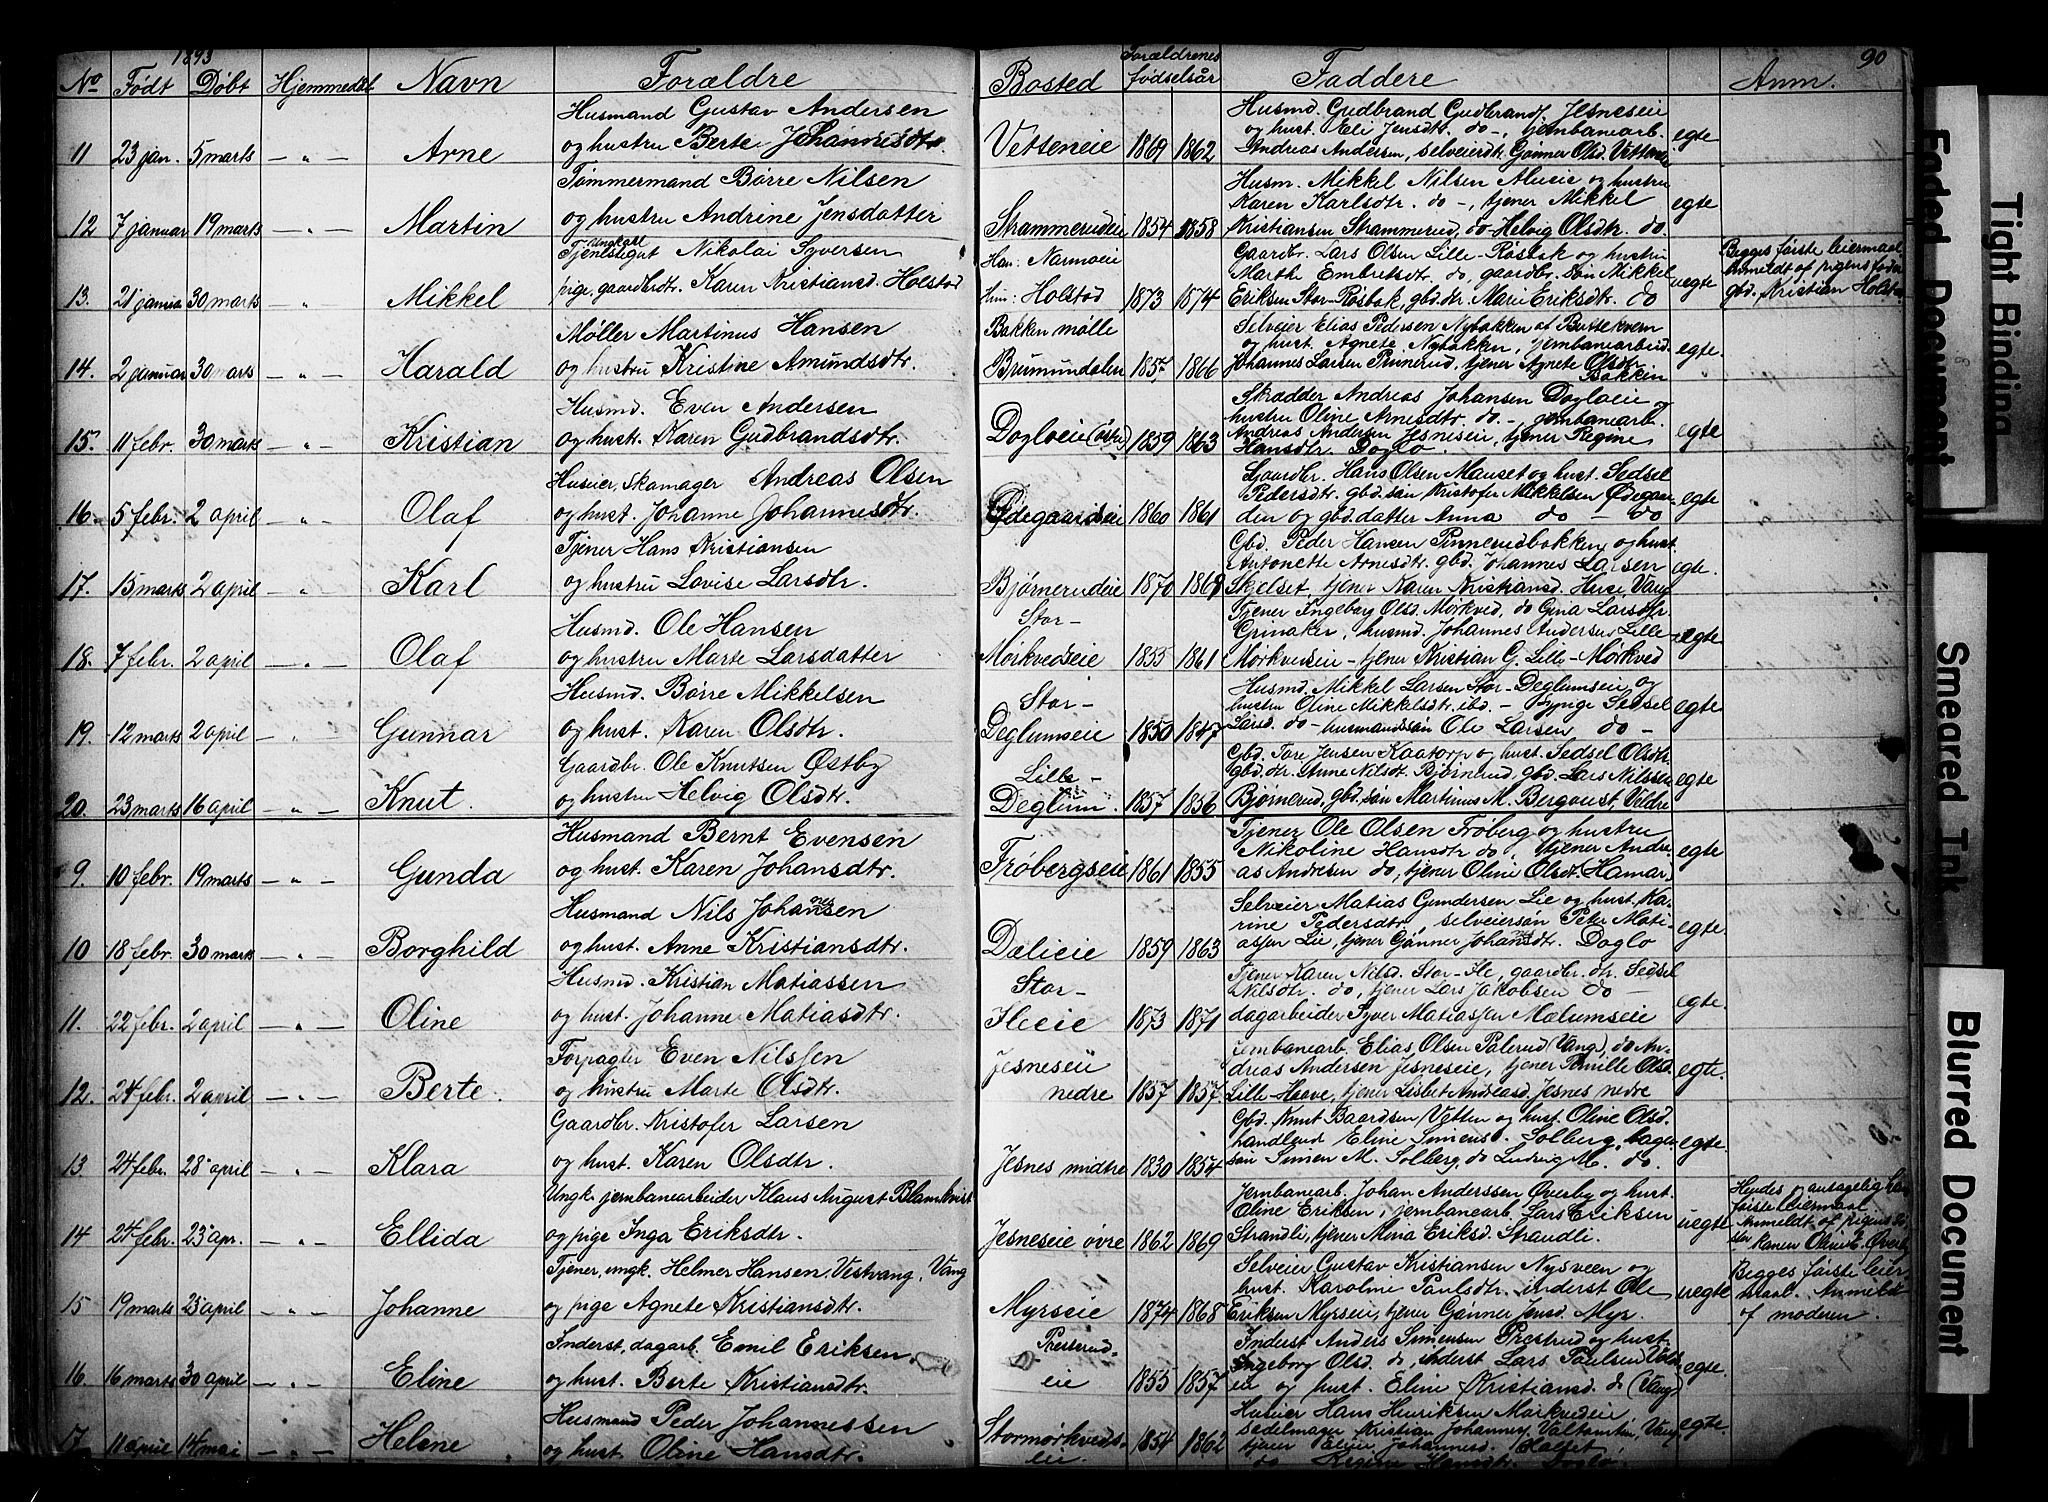 1893
90
No Født Døbt Hjemmedøbt Navn Forældre Bosted Forældrenes fødselsår Faddere Anm.
Husmand Gustav Andersen
Husmd. Gudbrand Gudbrand. Jesneseie
og hust. Eli Jensdtr. do -, jernbanearb.
11 23 jan. 5 marts — „ — Arne og hustru Berte Johannesdtr. Vetteneie 1869 1862 Andreas Andersen, selveierdtr. Gønner Olsd. Vetteneie egte
Tømmermand Børre Nilsen
Husm. Mikkel Nilsen Alueie og hustru
Karen Karlsdtr. do -, tjener Mikkel
12 7 januar 19 marts — „ — Martin og hustru Andrine Jensdatter Strammerudeie 1854 1858 Kristiansen Strammerud, do Helvig Olsdtr. do egte
Ungkarl
Tjenestegut Nikolai Syversen
Han: Narmoeie
Gaardbr. Lars Olsen Lille-Røsbak og hustru
Marthe Embretsdtr. do, gaardbr. søn Mikkel
Begges første leiermaal
Anmeldt af pigens fader
13. 21 januar 30 marts — „ Mikkel pige, gaardbrdtr. Karen Kristiansd. Holstad Hun: Holstad 1873 1874 Eriksen Stor-Røsbak, gbd.dtr. Marie Eriksdtr. do uegte gbd. Kristian Holstad
Møller Martinus Hansen
Bakken mølle
Selveier Elias Pedersen Nybakken af Buttekvern
og hust. Agnete Nybakken, jernbanearbeid.
14. 2 januar 30 marts — „ — Harald og hustru Kristine Amundsdtr. Brumundalen 1857 1866 Johannes Larsen Pinnerud, tjener Agnete Olsdtr. Bakken egte.
Husmd. Even Andersen
Skrædder Andreas Johansen Dogloeie
hustru Oline Arnesdtr. do. - jernbanearb.
15. 11 febr. 30 marts — „ — Kristian og hustr. Karen Gudbrandsdtr. Dogloeie (øvre) 1859 1863 Andreas Andersen Jesneseie, tjener Regine egte
Hansdtr. Doglo.
Huseier, Skomager Andreas Olsen
Gaardbr. Hans Olsen Mauset og hust. Sedsel
Pedersdtr. gbd. søn Kristofer Mikkelsen Ødegaar-
16 5 febr. 2 april — „ — Olaf og hust. Johanne Johannesdtr. Ødegaardseie 1860 1861 den og gbd. datter Anna do — do egte
Tjener Hans Kristiansen
Gbd. Peder Hansen Pinnerudbakken og hust.
Antonette Arnesdtr. gbd. Johannes Larsen
17. 15 marts 2 april — „ — Karl og hustru Lovise Larsdtr. Bjørnerudeie 1870 1868 Skjelset, tjener Karen Kristiansd. Huse, Vang egte.
Husmd. Ole Hansen
Stor-
Tjener Ingeborg Olsd. Mørkved, do Gina Larsdtr.
Grinaker, husmd. Johannes Andersen Lille-
18. 7 febr. 2 april — „ — Olaf og hustru Marte Larsdatter Mørkvedseie 1855 1861 Mørkvedseie - tjener Kristian G. Lille-Mørkved egte
Husmd. Børre Mikkelsen
Stor-
Husmd. Mikkel Larsen Stor-Deglumseie og
hustru Oline Mikkelsdtr. ibd. - pige Sedsel
19. 12 marts 2 april — „ Gunnar og hust. Karen Olsdtr. Deglumseie 1850 1847 Larsd. do - husmandssøn Ole Larsen do - egte
Gaardbr. Ole Knutsen Østby
Lille-
Gbd. Tore Jensen Kaatorp og hust. Sedsel Olsdtr.
gbd. dtr. Anne Nilsdt. Bjørnerud, gbd. Lars Nilssen
20. 23 marts 16 april „ — Knut. og hustru Helvig Olsdtr. Deglum. 1857 1856 Bjørnerud, gbd. søn Martinus M. Bergqust, Veldre egte
Husmand Bernt Evensen
Tjener Ole Olsen Frøberg og hustru
Nikoline Hansdtr do, tjener Andre-
9. 10 febr. 19 marts — „ — Gunda og hust. Karen Johansdtr. Frøbergseie 1861 1855 as Andresen do, tjener Oline Olsdt. Hamar, egte
Husmand Nils Johansen
Selveier Matias Gundersen Lie og hust. Ka-
rine Pedersdtr, selveiersøn Peter Mati-
10 18 febr. 30 marts — „ — Borghild og hust. Anne Kristiansdtr. Dælieie 1859 1863 assen Lie, tjener Gønner Johansdtr. Doglo egte.
Husmd. Kristian Matiassen
Stor-
Tjener Karen Nilsd. Stor-Ile, gaardbr. dtr. Sedsel
Nilsdtr. do, tjener Lars Jakobsen do -
11. 22 febr. 2 april — „ — Oline og hust. Johanne Matiasdtr. Ileeie 1873 1871 dagarbeider Syver Matiassen Mælumseie egte.
Forpagter Even Nilssen
Jesneseie
Jernbanearb. Elias Olsen Palerud (Vang), do An-
dreas Andersen Jesneseie, tjener Pernille Olsd.
12. 24 febr. 2 april — „ — Berte. og hustru Marte Olsdtr. nedre 1857 1857 Lille-Haave, tjener Lisbet Andreasd. Jesnes nedre egte.
Gaardbr. Kristofer Larsen
Gbd. Knut Baardsen Vetten og hust. Oline Olsd.
handlend. Eline Simensd. Solberg, bager-
13 24 febr. 28 april — „ — Klara og hust. Karen Olsdtr. Jesnes midtre 1830 1854 søn Simen M. Solberg, do Ludvig M. do. egte
Ungk. jernbanearbeider Klaus August Blamkvist
Jernbanearb. Johan Anderssen Øverby og hust.
Oline Eriksen, jernbanearb. Lars Eriksen
første leiermaal.
Anmeldt af pigens sø-
14 24 febr. 23 apr. — „ — Ellida og pige Inga Eriksdtr. Jesneseie øvre 1862 1869 Strandli, tjener Maria Eriksd. Strandli. uegte
Tjener, ungk. Helmer Hansen, Vestvang, Vang
Selveier Gustav Kristiansen Nysveen og
hust. Karoline Paulsdtr. inderst Ole
Begges første leier-
maal. Anmeldt
15 19 marts 23 april — „ — Johanne og pige Agnete Kristiansdtr. Myrseie 1874 1868 Eriksen Myrseie, tjener Gønner Jensd. Myr. uegte af moderen.
Inderst, dagarb. Emil Eriksen.
Presterud-
Inderst Anders Simensen Prestrud og hust.
Ingeborg Olsd. do, inderst Lars Paulsen
16 16 marts 30 april — „ — Eline og hust. Berte Kristiansdtr. eie 1855 1857 eie og hust. Eline Kristiansd. do (Vang) egte.
Husmand Peder Johannessen
Huseier Hans Henriksen Mørkvedeie
sedelmager Kristian Johannes. Valtomten, Vang
17. 11 april 14 mai — „ — Helene og hust. Oline Hansdtr. Stormørkveds- 1854 1862 tjener Eline Johannesd. egte.
eie. do Regine Hansdtr. Doglo.
Tight Binding
Faded Document
Smeared Ink
Blurred Document